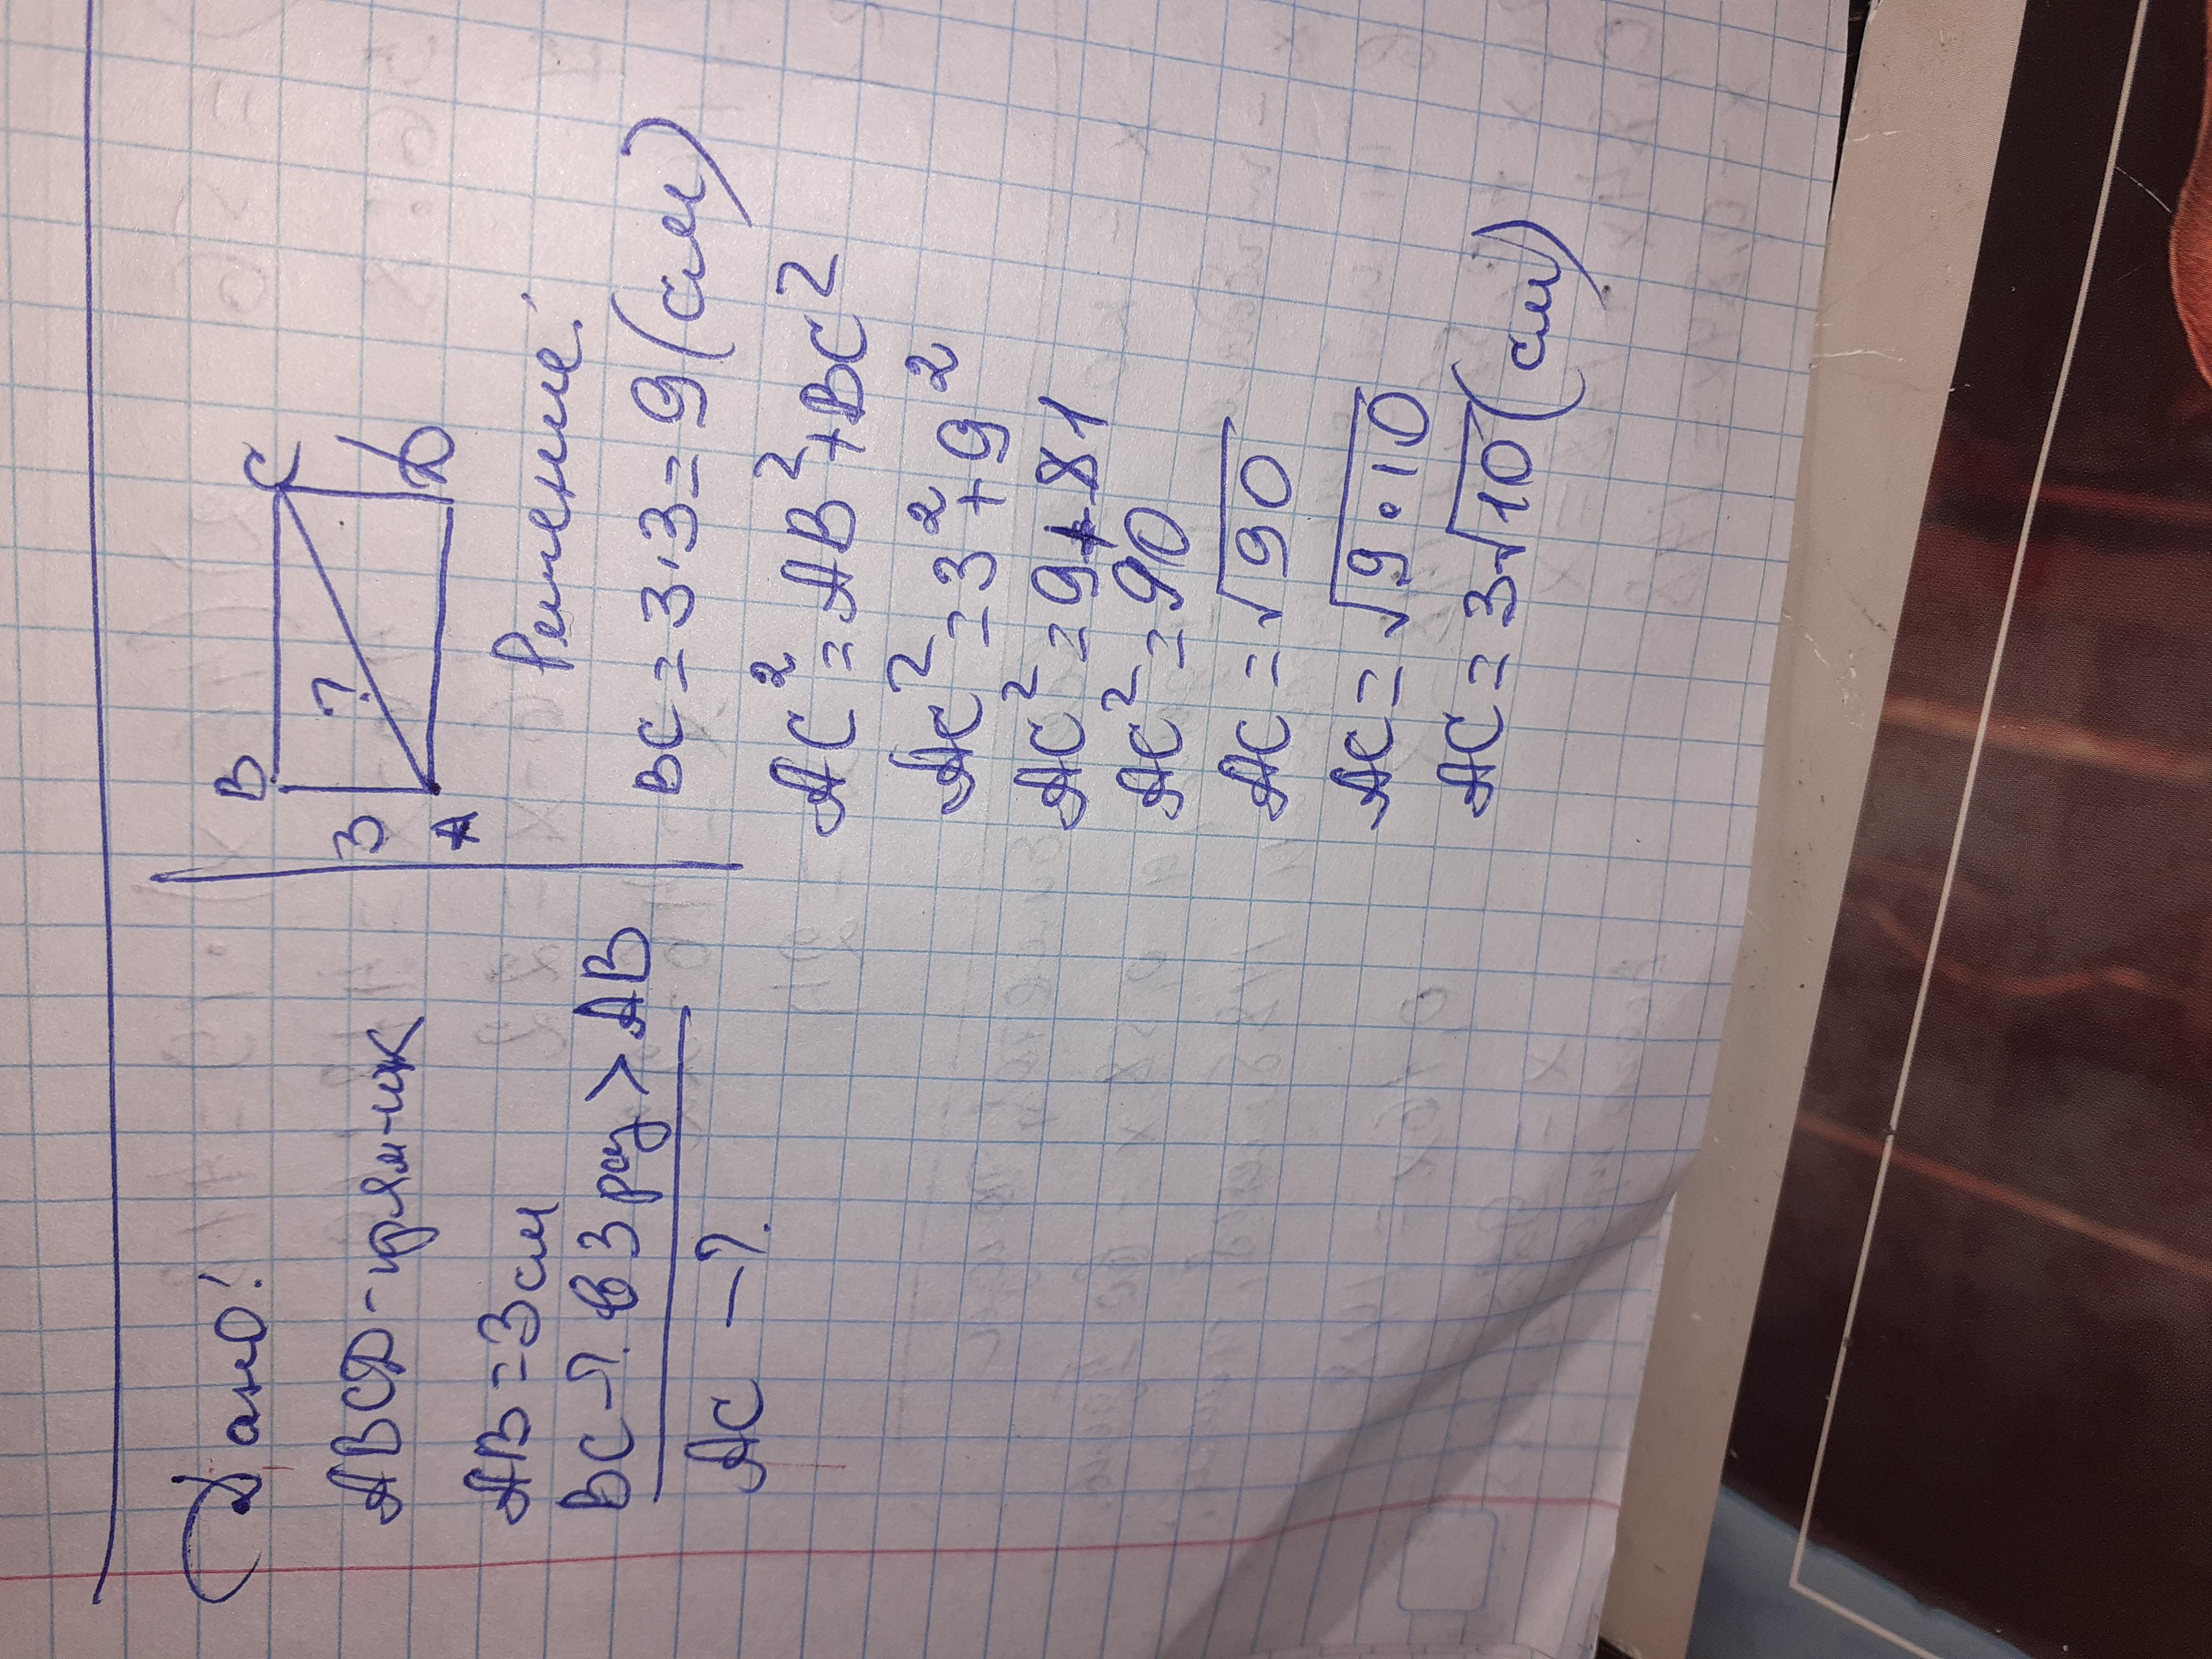 Дано:
ABCD-прям-ик
AB=3см
BC-?. в 3 раз > AB
AC -?.
B
C
3
?
A
D
Решение:
BC=3·3=9(см)
AC²=AB²+BC2
AC²=3²+9²
AC²=9+81
AC²=90
AC=√90
AC=√9·10
AC=3√10(см)